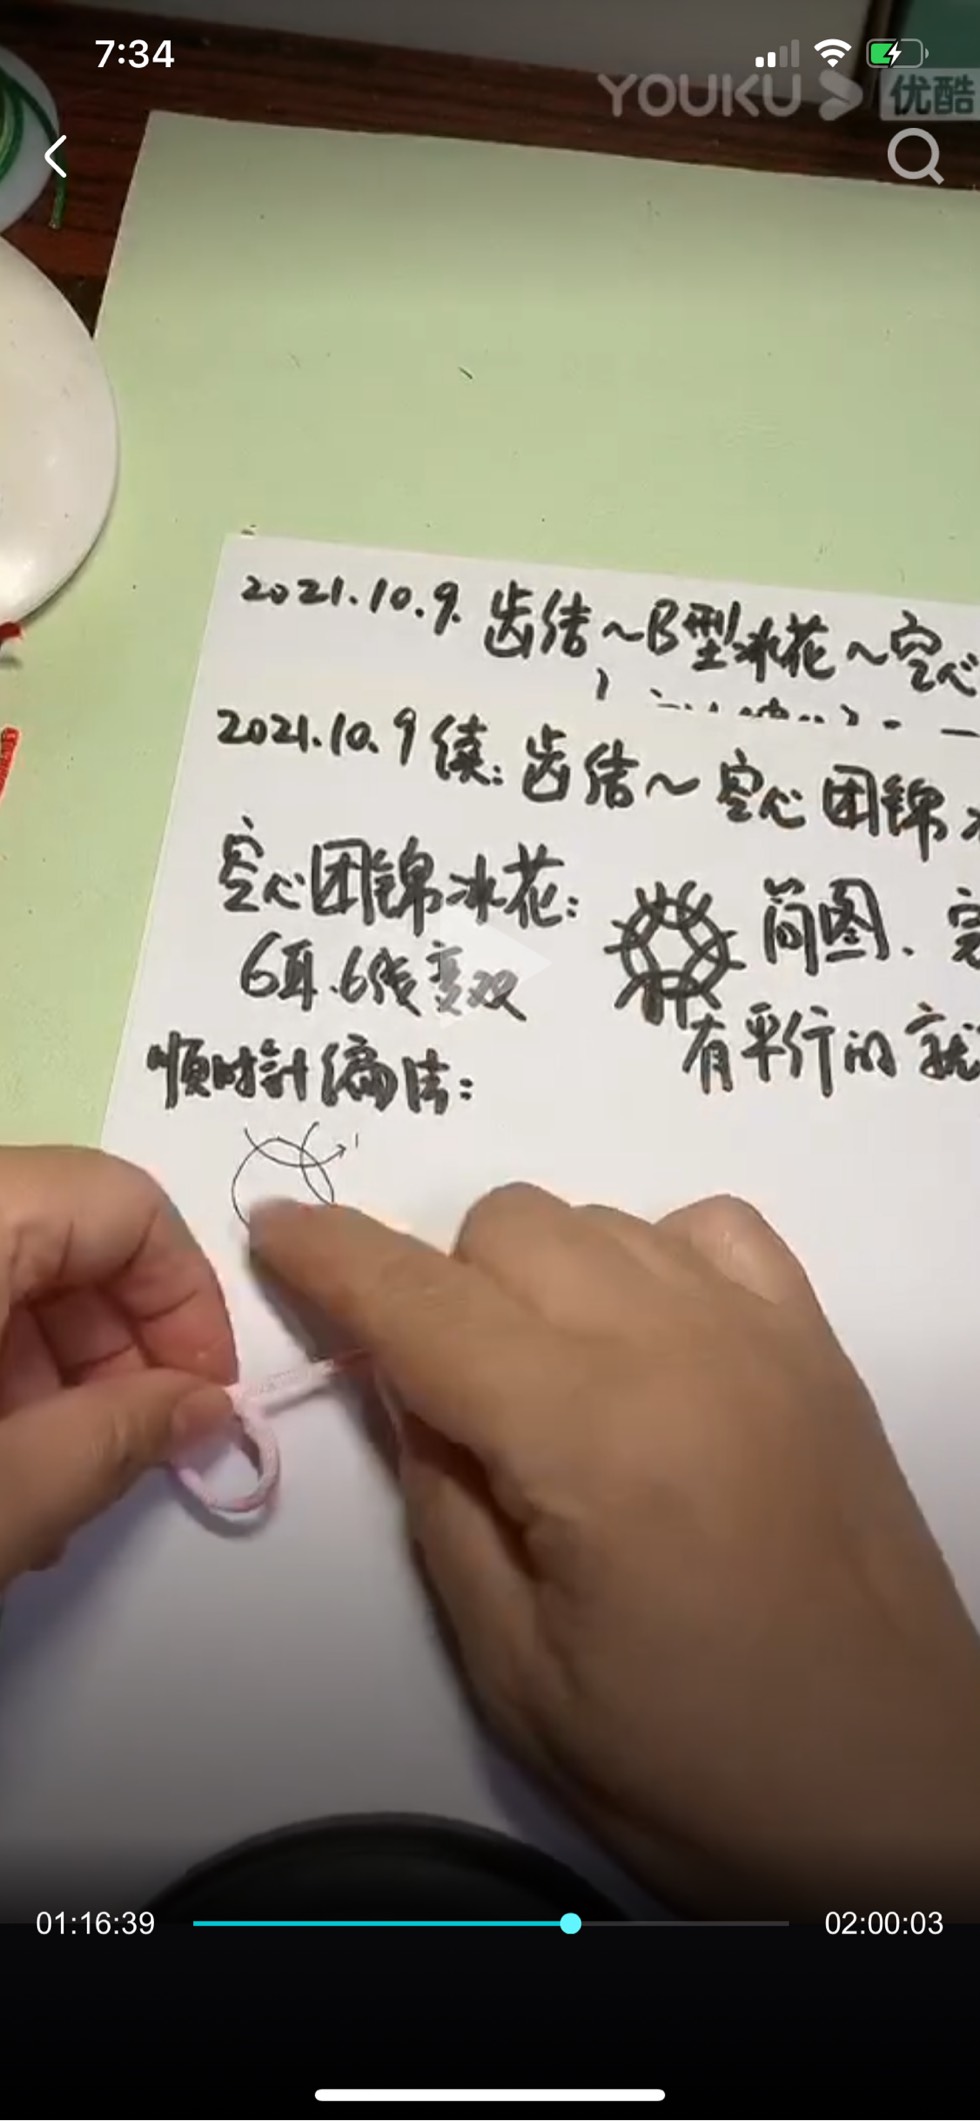 7:34
YOUKU 优酷
2021.10.9. 齿结~B型冰花~空心
2021.10.9续:齿结~空心团锦
空心团锦冰花:
简图.完
6耳.6线变双
有平行的就
顺时针编法:
1
01:16:39
02:00:03